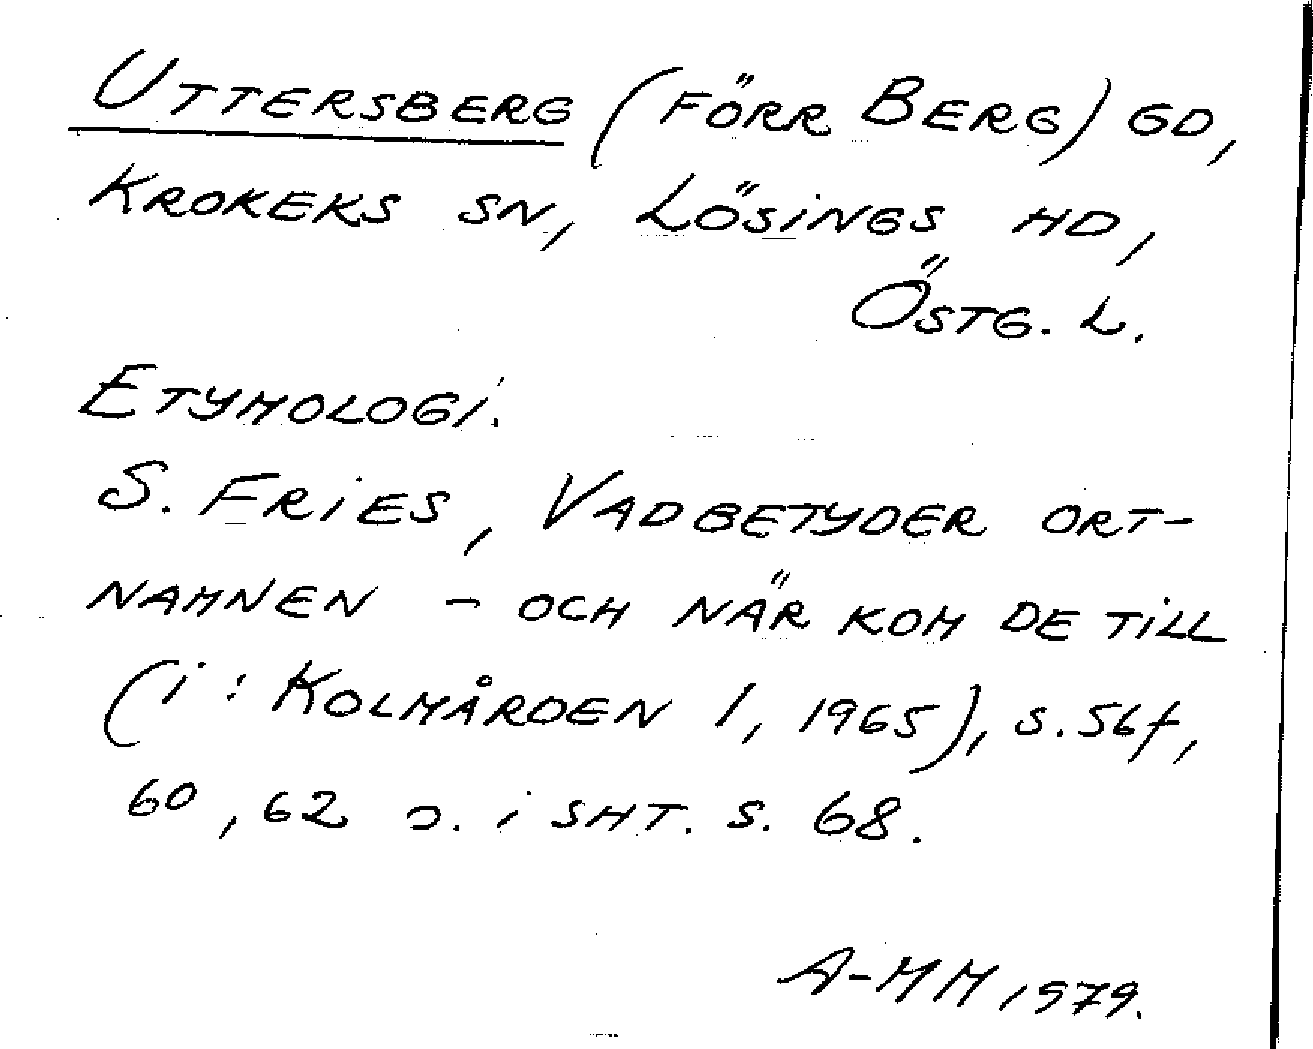 UTTERSBERG (FÖRR BERG) GD,
KROKEKS SN, LÖSINGS HD,
ÖSTG. L.
ETYMOLOGI.
S. FRIES, VAD BETYDER ORT-
NAMNEN - OCH NÄR KOM DE TILL
(i: KOLMÅRDEN 1, 1965), S. 56f,
60, 62 o. i SHT. S. 68.
A-MM 1979.